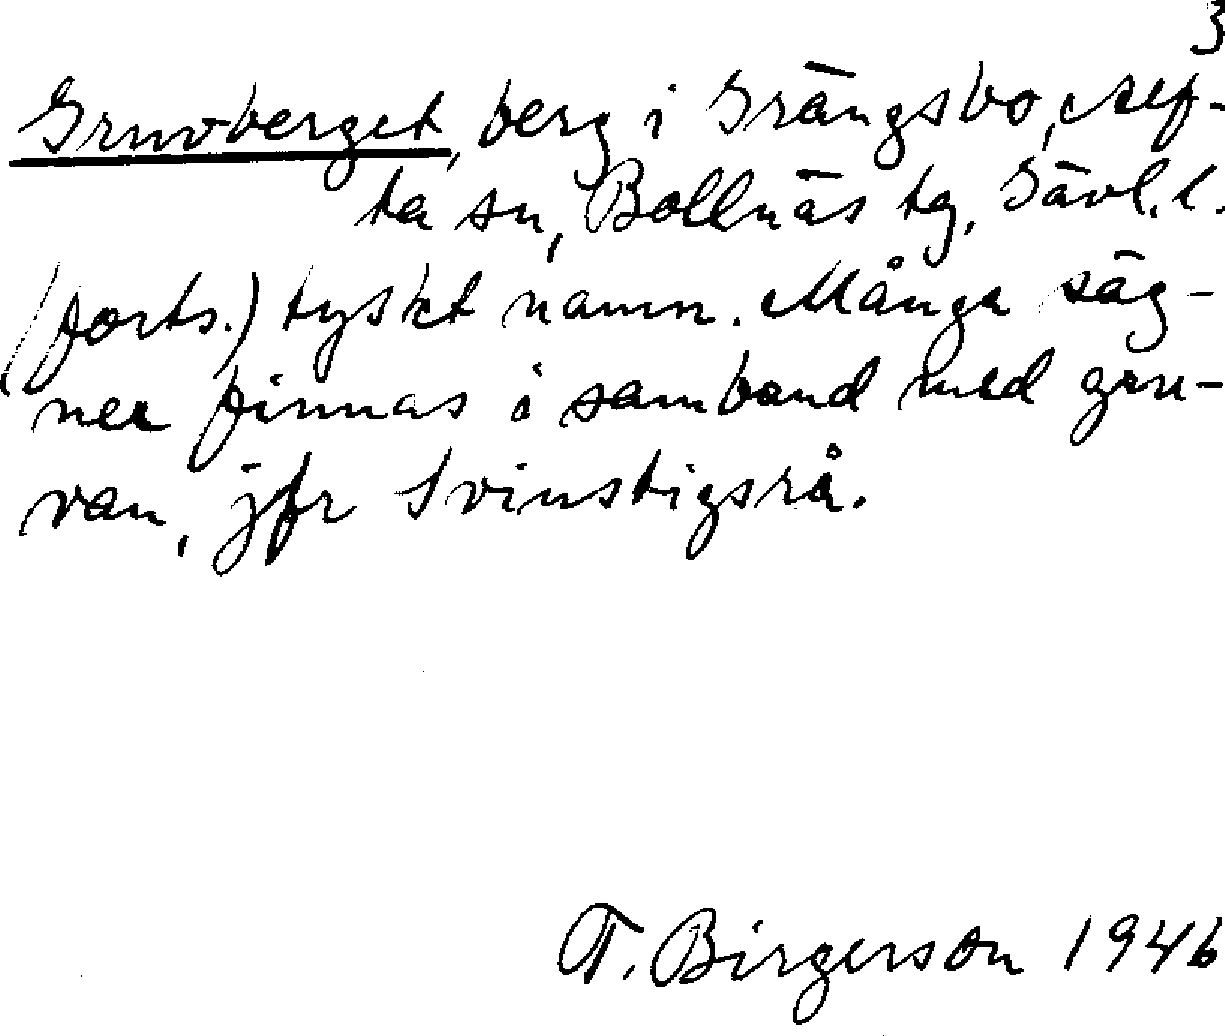 3
Gruvberget, berg i Grängsbo, Alf-
ta sn, Bollnäs tg, Gävl. l.
(forts.) tyskt namn. Många säg-
ner finnas i samband med gru-
van, jfr Svinstigsrå.
T. Birgerson 1946